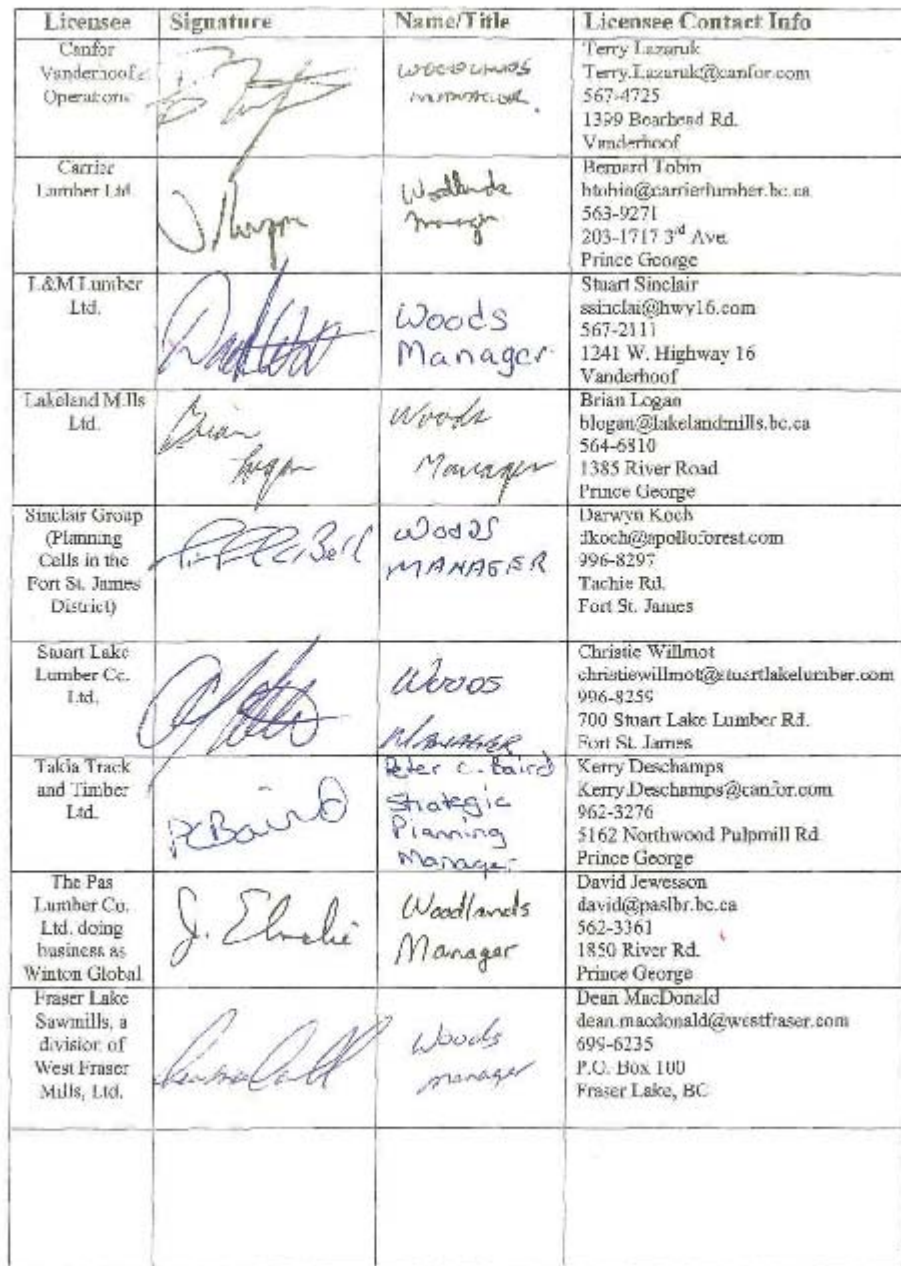 Licensee Signature Name/Title Licensee Contact Info
Canfor
Vanderhoof
Operations
WOODLANDS
MANAGER
Terry Lazaruk
Terry.Lazaruk@canfor.com
567-4725
1399 Bearhead Rd.
Vanderhoof
Carrier
Lumber Ltd.
Woodlands
Manager
Bernard Tobin
btobin@carrierlumber.bc.ca
563-9271
203-1717 3rd Ave.
Prince George
L&M Lumber
Ltd.
Woods
Manager
Stuart Sinclair
ssinclai@hwy16.com
567-2111
1241 W. Highway 16
Vanderhoof
Lakeland Mills
Ltd.
Brian
Logan
Woods
Manager
Brian Logan
blogan@lakelandmills.bc.ca
564-6810
1385 River Road
Prince George
Sinclair Group
(Planning
Cells in the
Fort St. James
District)
Bell
WOODS
MANAGER
Darwyn Koch
dkoch@apolloforest.com
996-8297
Tachie Rd.
Fort St. James
Stuart Lake
Lumber Co.
Ltd.
WOODS
MANAGER
Christie Willmot
christiewillmot@stuartlakelumber.com
996-8259
700 Stuart Lake Lumber Rd.
Fort St. James
Takla Track
and Timber
Ltd.
PCBaird
Peter C. Baird
Strategic
Planning
Manager
Kerry Deschamps
Kerry.Deschamps@canfor.com
962-3276
5162 Northwood Pulpmill Rd.
Prince George
The Pas
Lumber Co.
Ltd. doing
business as
Winton Global
J. Elmslie
Woodlands
Manager
David Jewesson
david@paslbr.bc.ca
562-3361
1850 River Rd.
Prince George
Fraser Lake
Sawmills, a
division of
West Fraser
Mills, Ltd.
Woods
manager
Dean MacDonald
dean.macdonald@westfraser.com
699-6235
P.O. Box 100
Fraser Lake, BC